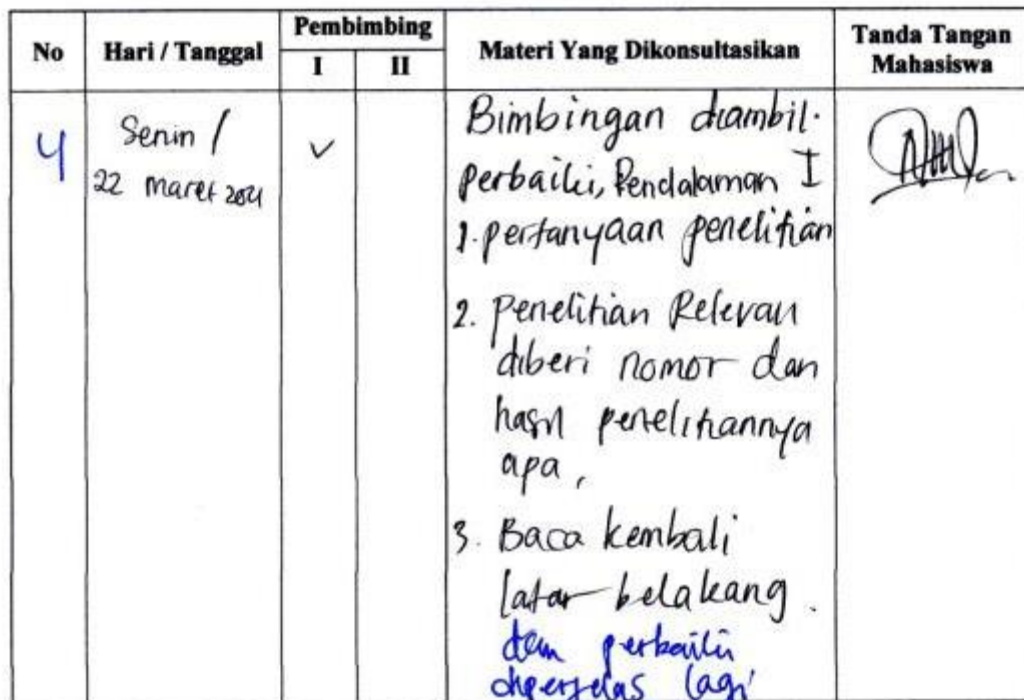 No Hari / Tanggal Pembimbing Materi Yang Dikonsultasikan Tanda Tangan Mahasiswa
I II
4 Senin / 22 maret 2021 ✓
Bimbingan diambil.
perbaiki, Pendalaman I
1. pertanyaan penelitian
2. Penelitian Relevan
diberi nomor dan
hasil penelitiannya
apa,
3. Baca kembali
latar belakang.
dan perbaiki
diperjelas lagi